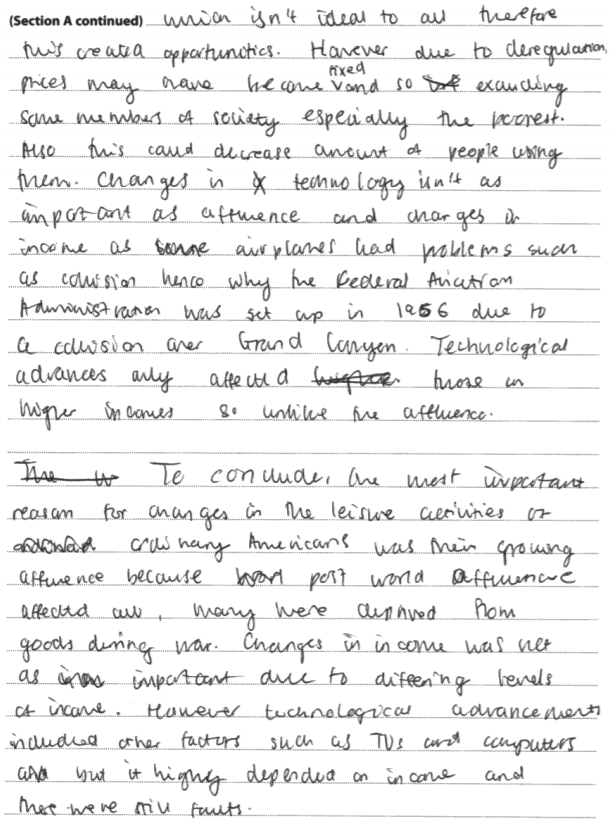 (Section A continued) which isn't ideal to all therefore
this created opportunities. However due to deregulation,
prices may have become fixed and so excluding
some members of society especially the poorest.
Also this could decrease amount of people using
them. Changes in technology isn't as
important as affluence and changes in
income as some airplanes had problems such
as collision hence why the Federal Aviation
Administration was set up in 1956 due to
a collision over Grand Canyon. Technological
advances only affected those in
higher incomes so unlike the affluence.
To conclude, the most important
reason for changes in the leisure activities of
ordinary Americans was their growing
affluence because post world affluence
affected all, many were deprived from
goods during war. Changes in income was not
as important due to differing levels
of income. However technological advancements
included other factors such as TVs and computers
but it highly depended on income and
there were still faults.